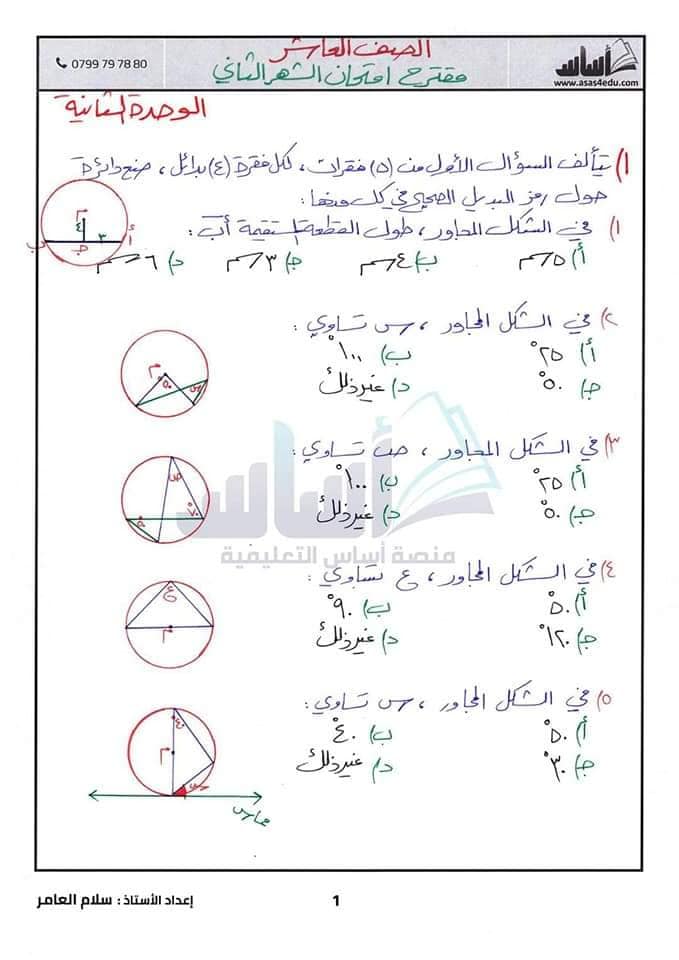 الصف العاشر
مقترح امتحان الشهر الثاني
0799 79 78 80
أساس
www.asas4edu.com
الوحدة الثانية
١) يتألف السؤال الأول من (٥) فقرات ، لكل فقرة (٤) بدائل ، ضع دائرة
حول رمز البديل الصحيح في كل منها :
١) في الشكل المجاور ، طول القطعة المستقيمة أب :
أ) ٥ سم ب) ٤ سم ج) ٣ سم د) ٦ سم
م ٤ ٣ أ ب ج
٢) في الشكل المجاور ، س تساوي :
أ) ٢٥° ب) ١٠٠°
ج) ٥٠° د) غير ذلك
م ٥٠ س
٣) في الشكل المجاور ، ص تساوي :
أ) ٢٥° ب) ١٠٠°
ج) ٥٠° د) غير ذلك
ص ٧٠°
أساس
منصة أساس التعليمية
٤) في الشكل المجاور ، ع تساوي :
أ) ٥٠° ب) ٩٠°
ج) ١٢٠° د) غير ذلك
ع م
٥) في الشكل المجاور ، س تساوي :
أ) ٥٠° ب) ٤٠°
ج) ٣٠° د) غير ذلك
٤٠° م س
مماس
إعداد الأستاذ : سلام العامر
1